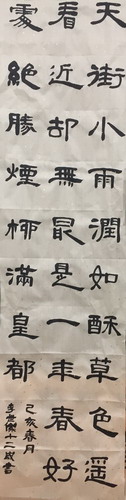 天街小雨潤如酥草色遥
看近却無最是一年春好
處絕勝煙柳滿皇都
己亥春月
十二歲書